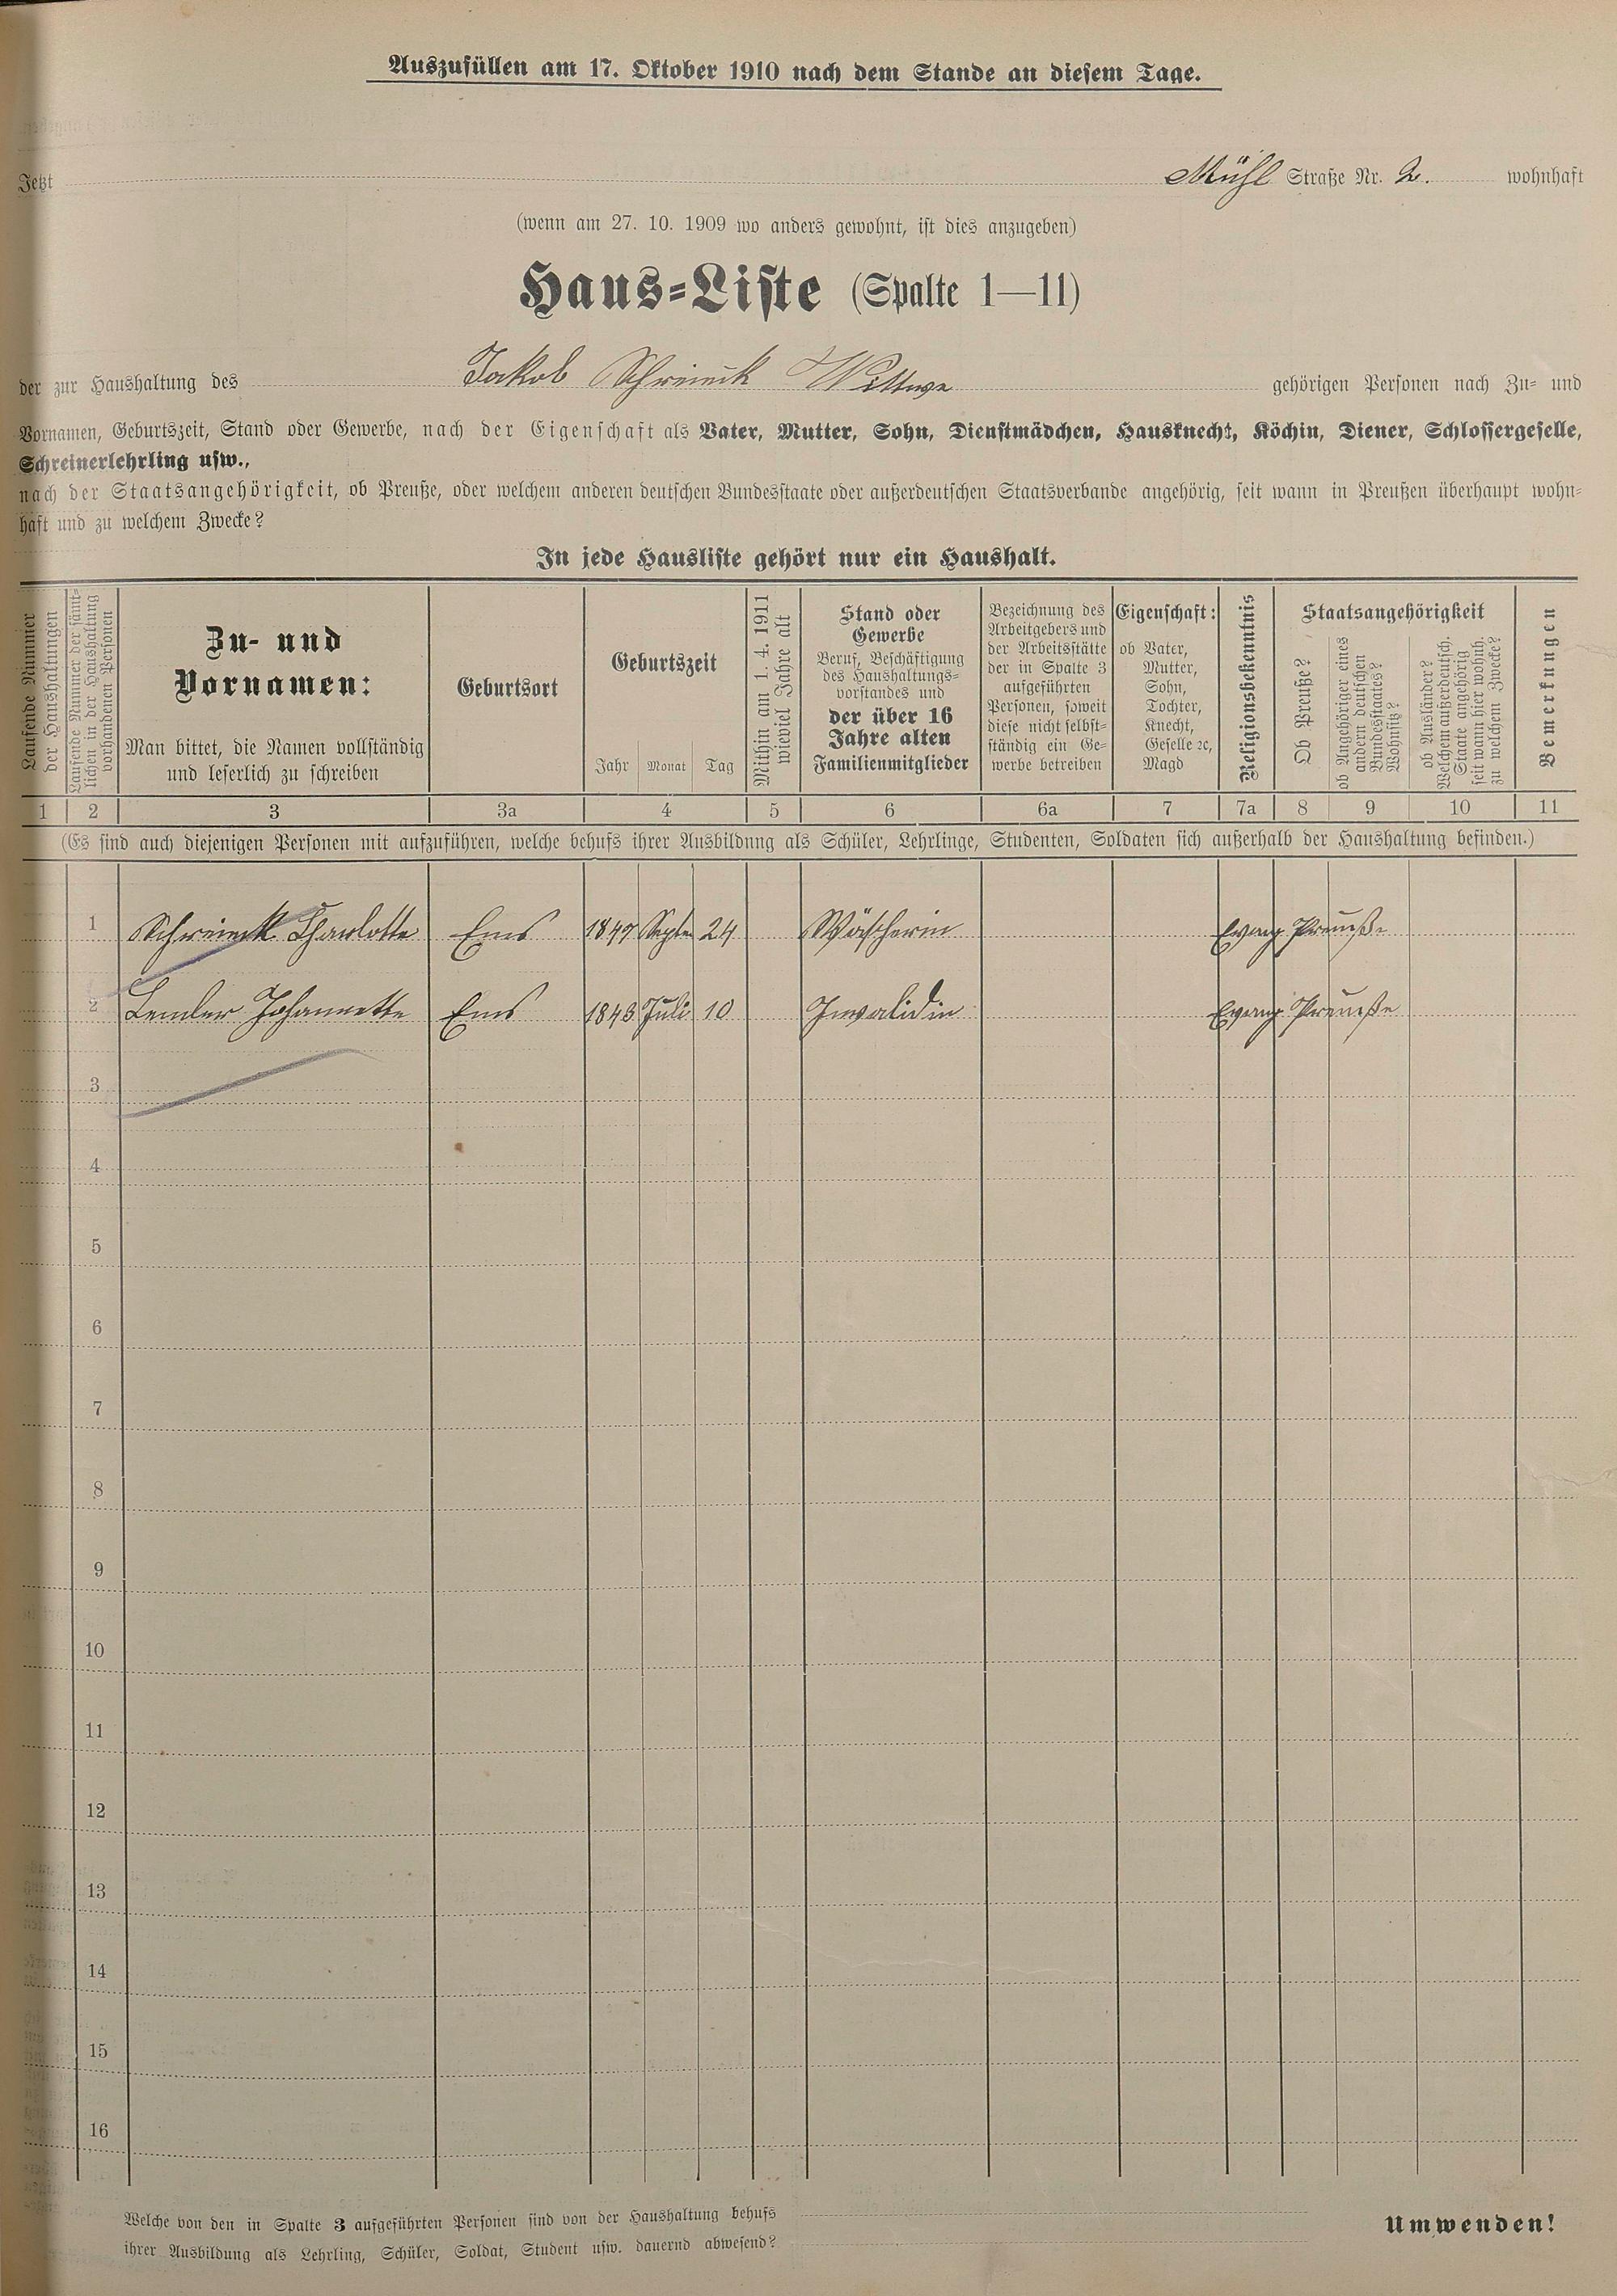 Auszufüllen am 17. Oktober 1910 nach dem Stande an diesem Tage.
Jetzt Mühl Straße Nr. 2. wohnhaft
(wenn am 27. 10. 1909 wo anders gewohnt, ist dies anzugeben)
Haus-Liste (Spalte 1—11)
der zur Haushaltung des Jakob Wittwe gehörigen Personen nach Zu- und
Vornamen, Geburtszeit, Stand oder Gewerbe, nach der Eigenschaft als Vater, Mutter, Sohn, Dienstmädchen, Hausknecht, Köchin, Diener, Schlossergeselle,
Schreinerlehrling usw.,
nach der Staatsangehörigkeit, ob Preuße, oder welchem anderen deutschen Bundesstaate oder außerdeutschen Staatsverbande angehörig, seit wann in Preußen überhaupt wohn-
haft und zu welchem Zwecke?
In jede Hausliste gehört nur ein Haushalt.
Laufende Nummer
der Haushaltungen
Laufende Nummer der sämt-
lichen in der Haushaltung
vorhandenen Personen
Zu- und
Vornamen:
Man bittet, die Namen vollständig
und leserlich zu schreiben
Geburtsort
Geburtszeit
Jahr Monat Tag
Mithin am 1. 4. 1911
wieviel Jahre alt
Stand oder
Gewerbe
Beruf, Beschäftigung
des Haushaltungs-
vorstandes und
der über 16
Jahre alten
Familienmitglieder
Bezeichnung des
Arbeitgebers und
der Arbeitsstätte
der in Spalte 3
aufgeführten
Personen, soweit
diese nicht selbst-
ständig ein Ge-
werbe betreiben
Eigenschaft:
ob Vater,
Mutter,
Sohn,
Tochter,
Knecht,
Geselle ꝛc,
Magd
Religionsbekenntnis
Staatsangehörigkeit
Ob Preuße?
ob Angehöriger eines
andern deutschen
Bundesstaates?
Wohnsitz?
ob Ausländer?
Welchem außerdeutsch.
Staate angehörig
seit wann hier wohnh.
zu welchem Zwecke?
Bemerkungen
1 2 3 3a 4 5 6 6a 7 7a 8 9 10 11
(Es sind auch diejenigen Personen mit aufzuführen, welche behufs ihrer Ausbildung als Schüler, Lehrlinge, Studenten, Soldaten sich außerhalb der Haushaltung befinden.)
1 Charlotte Ems 1847 Septe 24 Wäscherin Evang Preuße
2 Lemler Johannette Ems 1843 Juli 10 Invalidin Evang Preuße
3
4
5
6
7
8
9
10
11
12
13
14
15
16
Welche von den in Spalte 3 aufgeführten Personen sind von der Haushaltung behufs
ihrer Ausbildung als Lehrling, Schüler, Soldat, Student usw. dauernd abwesend?
Umwenden!